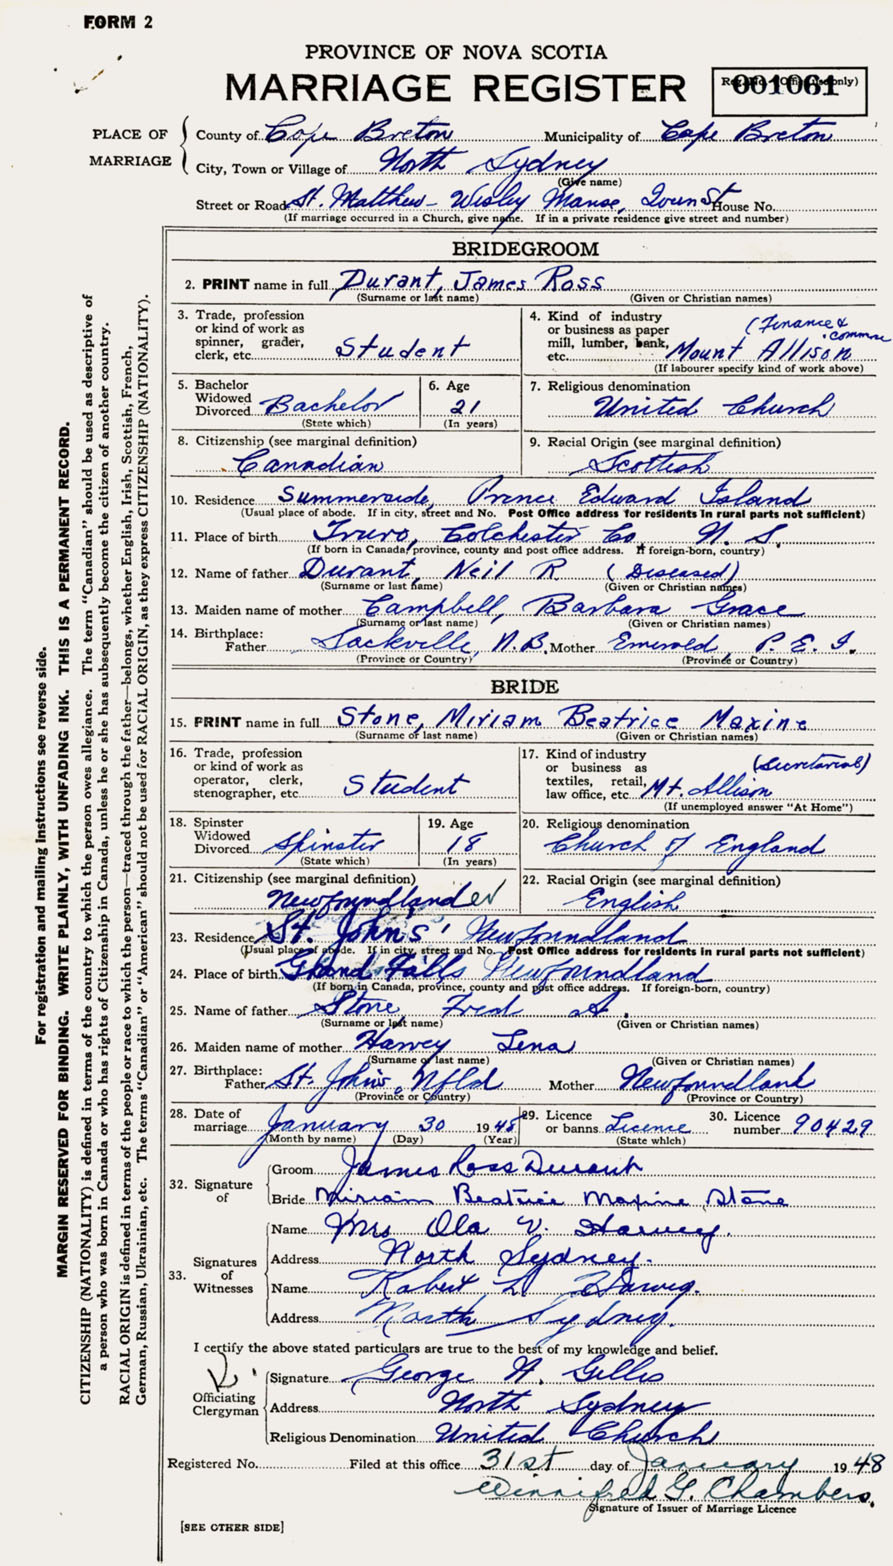 FORM 2
PROVINCE OF NOVA SCOTIA
MARRIAGE REGISTER
Reg. No. (Office use only)
001061
PLACE OF MARRIAGE
County of Cape Breton Municipality of Cape Breton
City, Town or Village of North Sydney
(Give name)
Street or Road St. Matthew - Wesley Manse, Queen St House No.
(If marriage occurred in a Church, give name. If in a private residence give street and number)
BRIDEGROOM
2. PRINT name in full Durant, James Ross
(Surname or last name) (Given or Christian names)
3. Trade, profession or kind of work as spinner, grader, clerk, etc. Student
4. Kind of industry or business as paper mill, lumber, bank, etc. Mount Allison (Finance &
(If labourer specify kind of work above)
5. Bachelor Widowed Divorced Bachelor
(State which)
6. Age 21
(In years)
7. Religious denomination United Church
8. Citizenship (see marginal definition) Canadian
9. Racial Origin (see marginal definition) Scottish
10. Residence Summerside, Prince Edward Island
(Usual place of abode. If in city, street and No. Post Office address for residents in rural parts not sufficient)
11. Place of birth Truro, Colchester Co, N. S.
(If born in Canada, province, county and post office address. If foreign-born, country)
12. Name of father Durant, Neil R (Diseased)
(Surname or last name) (Given or Christian names)
13. Maiden name of mother Campbell, Barbara Grace
(Surname or last name) (Given or Christian names)
14. Birthplace: Father Sackville, N.B. Mother Emerald, P. E. I.
(Province or Country) (Province or Country)
BRIDE
15. PRINT name in full Stone, Miriam Beatrice Maxine
(Surname or last name) (Given or Christian names)
16. Trade, profession or kind of work as operator, clerk, stenographer, etc. Student
17. Kind of industry or business as textiles, retail, law office, etc. Mt. Allison (Secretarial)
(If unemployed answer "At Home")
18. Spinster Widowed Divorced Spinster
(State which)
19. Age 18
(In years)
20. Religious denomination Church of England
21. Citizenship (see marginal definition) Newfoundlander
22. Racial Origin (see marginal definition) English
23. Residence St. John's' Newfoundland
(Usual place of abode. If in city, street and No. Post Office address for residents in rural parts not sufficient)
24. Place of birth Grand Falls Newfoundland
(If born in Canada, province, county and post office address. If foreign-born, country)
25. Name of father Stone, Fred A.
(Surname or last name) (Given or Christian names)
26. Maiden name of mother Harvey Lena
(Surname or last name) (Given or Christian names)
27. Birthplace: Father St. John's, Nfld Mother Newfoundland
(Province or Country) (Province or Country)
28. Date of marriage January 30 1948
(Month by name) (Day) (Year)
29. Licence or banns Licence
(State which)
30. Licence number 90429
32. Signature of
Groom James Ross Durant
Bride Miriam Beatrice Maxine Stone
33. Signatures of Witnesses
Name Mrs Ola V. Harvey.
Address North Sydney.
Name Robert L. Harvey.
Address North Sydney.
I certify the above stated particulars are true to the best of my knowledge and belief.
Officiating Clergyman
Signature George N. Gillis
Address North Sydney
Religious Denomination United Church
Registered No. Filed at this office 31st day of January 1948
Winnifred G. Chambers.
Signature of Issuer of Marriage Licence
[SEE OTHER SIDE]
For registration and mailing instructions see reverse side.
MARGIN RESERVED FOR BINDING. WRITE PLAINLY, WITH UNFADING INK. THIS IS A PERMANENT RECORD.
CITIZENSHIP (NATIONALITY) is defined in terms of the country to which the person owes allegiance. The term "Canadian" should be used as descriptive of
a person who was born in Canada or who has rights of Citizenship in Canada, unless he or she has subsequently become the citizen of another country.
RACIAL ORIGIN is defined in terms of the people or race to which the person—traced through the father—belongs, whether English, Irish, Scottish, French,
German, Russian, Ukrainian, etc. The terms "Canadian" or "American" should not be used for RACIAL ORIGIN, as they express CITIZENSHIP (NATIONALITY).